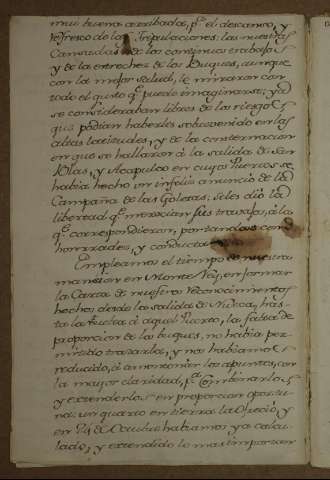 muy buena acavadas, pª el descanso, y
refresco de las Tripulaciones: las nuestras
Cansadas de los continuos trabajos
y de la estrechez de los Buques, aunque
con la mejor salud, le miraron con
todo el gusto qº puede imaginarse; yá
se consideraban libres de los riesgos
que podian haberles sobrevenido en las
altas latitudes, y de la consternacion
en que se hallaron á la salida de San
Blas, y Acapulco en cuyos Puertos se
habia hecho un infeliz anuncio de la
Campaña de las Goletas: Se les dió la
libertad qº merecian sus trabajos, á lo
qº correspondieron, portandose con
honradez, y conducta
Empleamos el tiempo de nuestra
mansion en Monte Rey, en formar
la Carta de nuestros reconocimientos
hechos desde la salida de Nutca, has-
ta la buelta á aquel Puerto, la falta de
proporcion de los buques, no habia per-
mitido trazarla, y nos habiamos
reducido, á amontonar los apuntes, con
la mayor claridad, pª Combinarlos,
y extenderlos en proporcion oportu-
na: un quarto en tierra la ofreció, y
en 24 de Octubre habiamos ya calcu-
lado, y extendido lo mas importan